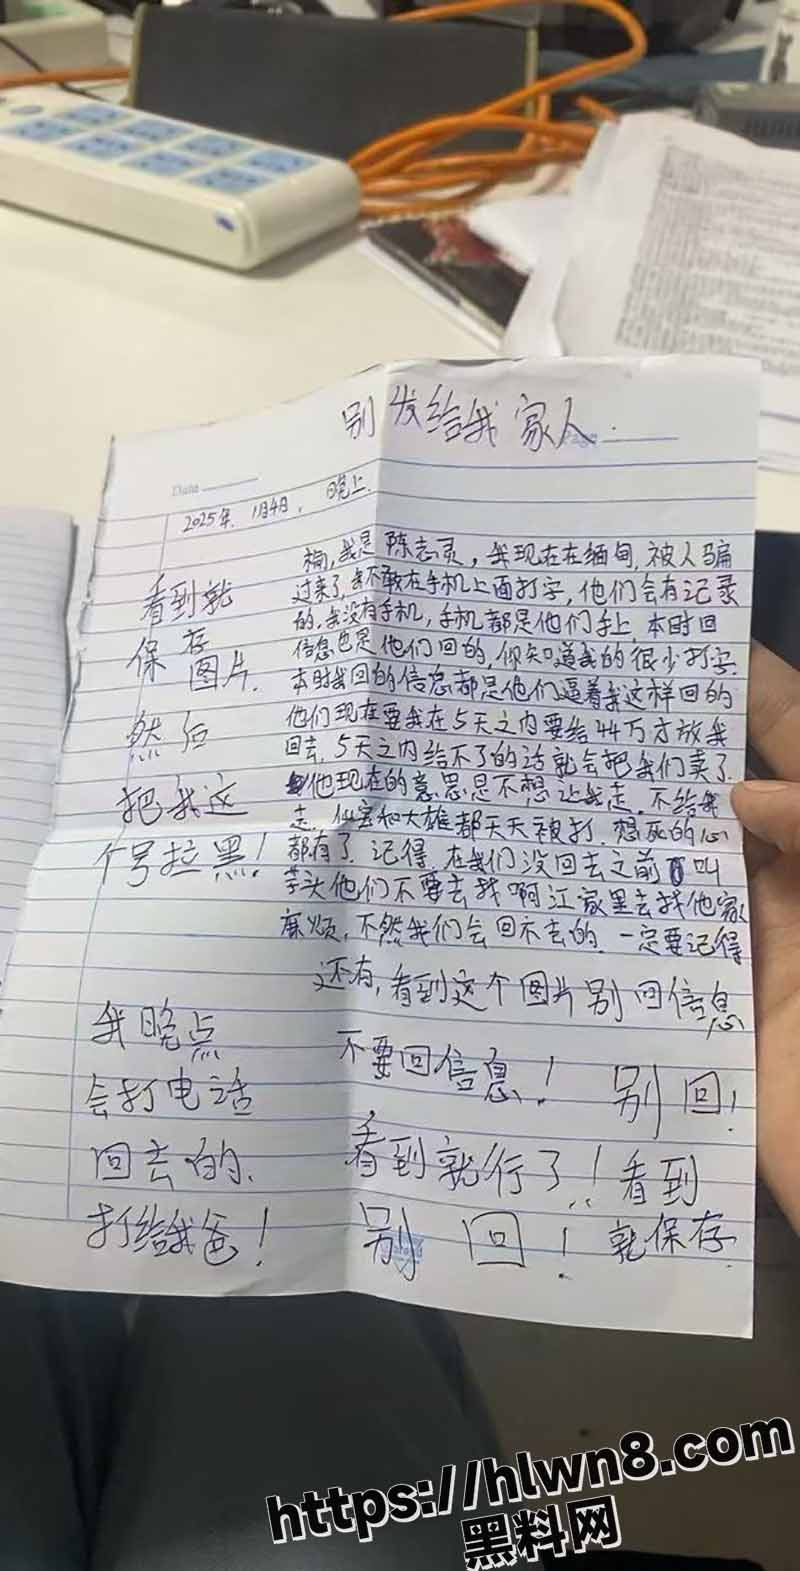 别发给我家人.
Page
Date
2025年. 1月4日, 晚上.
楠, 我是陈志灵, 我现在在缅甸, 被人骗
过来了, 我不敢在手机上面打字, 他们会有记录
的, 我没有手机, 手机都是他们手上, 本时回
信息也是他们回的, 你知道我的很少打字.
本时我回的信息都是他们逼着我这样回的
他们现在要我在5天之内要给44万才放我
回去, 5天之内给不了的话就会把我们卖了.
他现在的意思是不想让我走, 不给我
走, 和大雄都天天被打, 想死的心
都有了, 记得, 在我们没回去之前叫
芋头他们不要去找啊江家里去找他家
麻烦, 不然我们会回不去的, 一定要记得
还有, 看到这个图片别回信息
不要回信息! 别回!
看到就行了! 看到
别回! 就保存.
看到就
保存
图片.
然后
把我这
个号拉黑!
我晚点
会打电话
回去的.
打给我爸!
https://hlwn8.com
黑料网